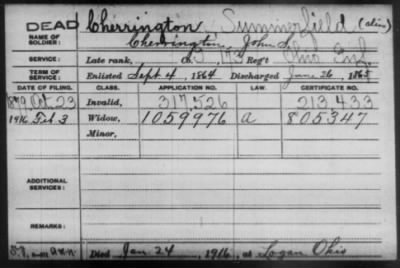 DEAD Cherrington, Summerfield (alias)
NAME OF SOLDIER: Cherrington, John S.
SERVICE: Late rank, Co. 173 Reg't Ohio Inf.
TERM OF SERVICE: Enlisted Sept 4, 1864 Discharged June 26, 1865
DATE OF FILING. CLASS. APPLICATION NO. LAW. CERTIFICATE NO.
1879 Oct. 23 Invalid, 317.526 213.433
1916 Feb 3 Widow, 1059976 a 805347
Minor,
ADDITIONAL SERVICES:
REMARKS:
Died Jan 24, 1916, at Logan Ohio